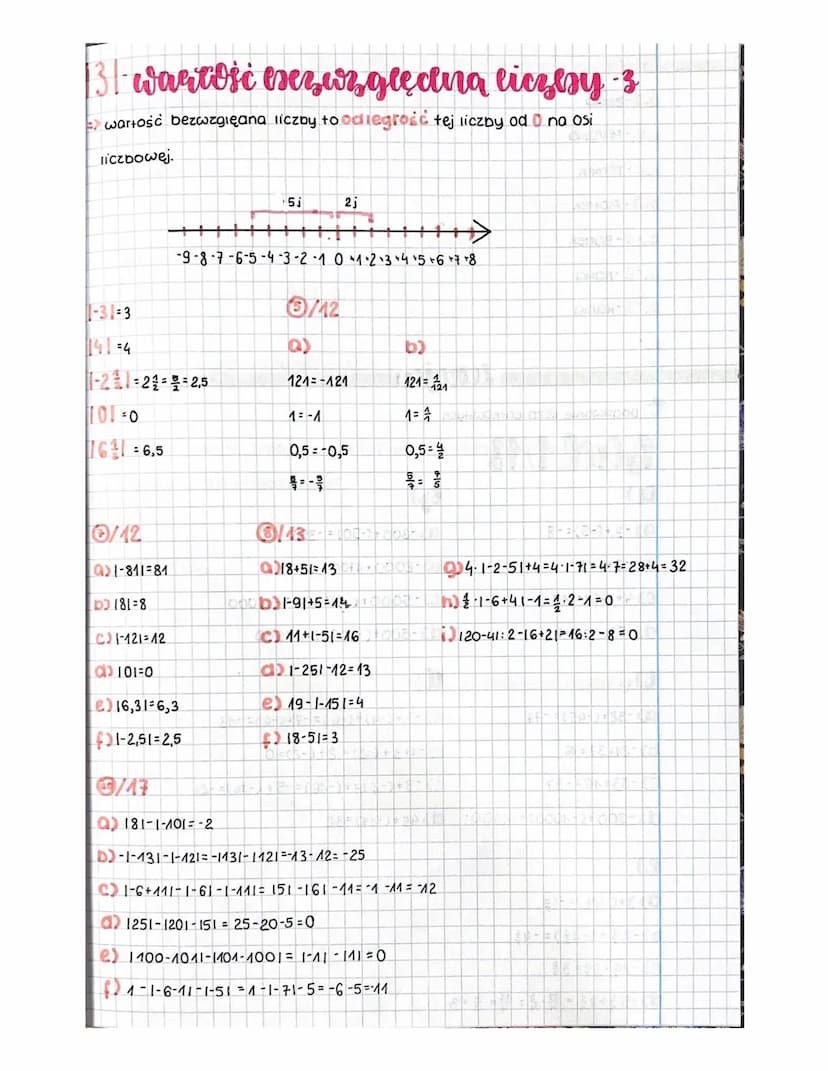 |3|- wartość bezwzględna liczby -3
=> wartość bezwzględna liczby to odległość tej liczby od 0 na osi
liczbowej.
5j 2j
-9 -8 -7 -6 -5 -4 -3 -2 -1 0 +1 +2 +3 +4 +5 +6 +7 +8
|-3|=3 5/12
|4|=4 a) b)
|-2 1/2|=2 1/2=5/2=2,5 121=-121 121=1/121
|0|=0 1=-1 1=1/1
|6 1/2|=6,5 0,5=-0,5 0,5=4/2
5/7=-5/7 5/7=7/5
7/12 8/13
a) |-81|=81 a) |8+5|=13 g) 4·|-2-5|+4=4·|-7|=4·7=28+4=32
b) |8|=8 b) |-9|+5=14 h) 1/2·|-6+4|-1=1/2·2-1=0
c) |-12|=12 c) 11+|-5|=16 i) |20-4|:2-|6+2|=16:2-8=0
d) |0|=0 d) |-25|-12=13
e) |6,3|=6,3 e) 19-|-15|=4
f) |-2,5|=2,5 f) |8-5|=3
/17
a) |8|-|-10|=-2
b) -|-13|-|-12|=-|13|-|12|=-13-12=-25
c) |-6+11|-|-6|-|-11|=|5|-|6|-11=-1-11=-12
d) |25|-|20|-|5|=25-20-5=0
e) |100-101|-|101-100|=|-1|-|1|=0
f) 1-|-6-1|-|-5|=1-|-7|-5=-6-5=-11